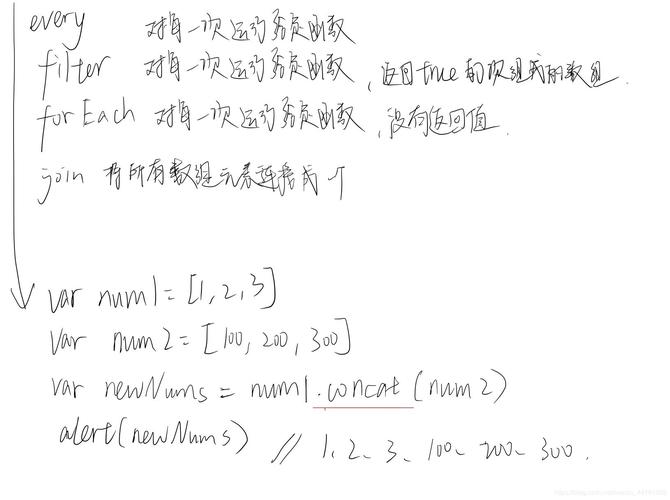 every 对每一次运行给定函数
filter 对每一次运行给定函数，返回true的次组成的数组.
forEach 对每一次运行给定函数，没有返回值.
join 将所有数组元素连接成一个
var num1 = [1, 2, 3]
var num2 = [100, 200, 300]
var newNums = num1.concat (num2)
alert(newNums) // 1、2、3、100、200、300.